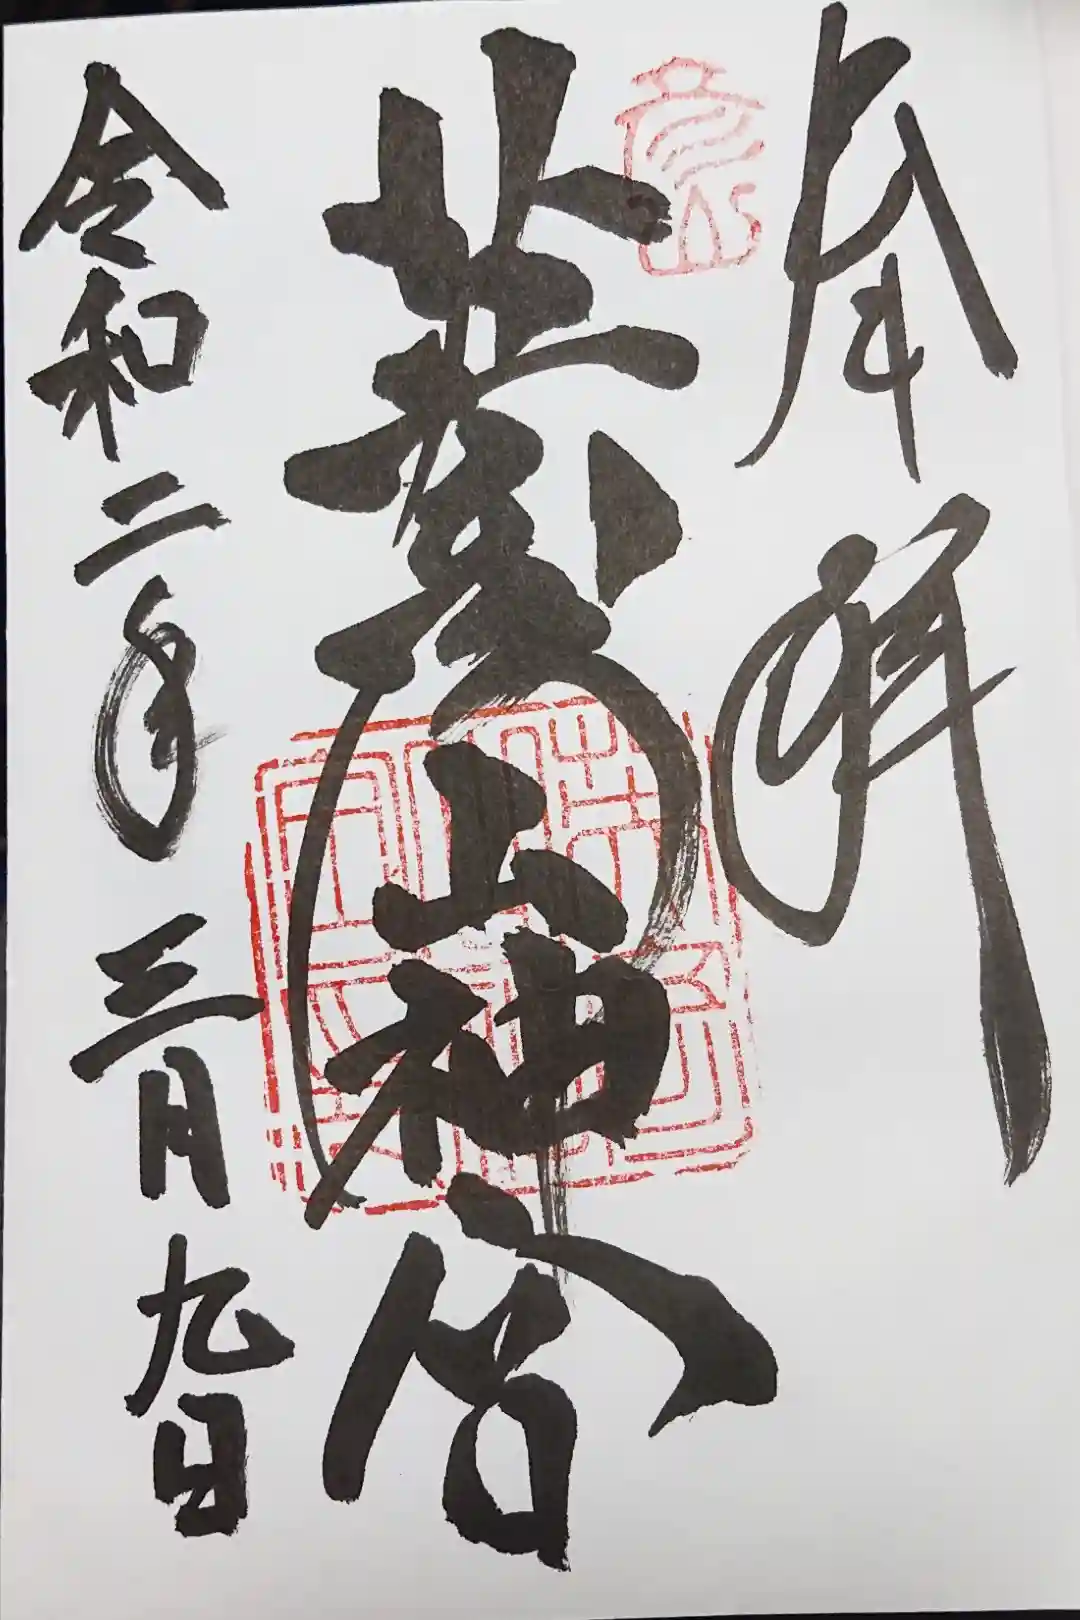 奉拝
英彦山神宮
令和二年三月九日